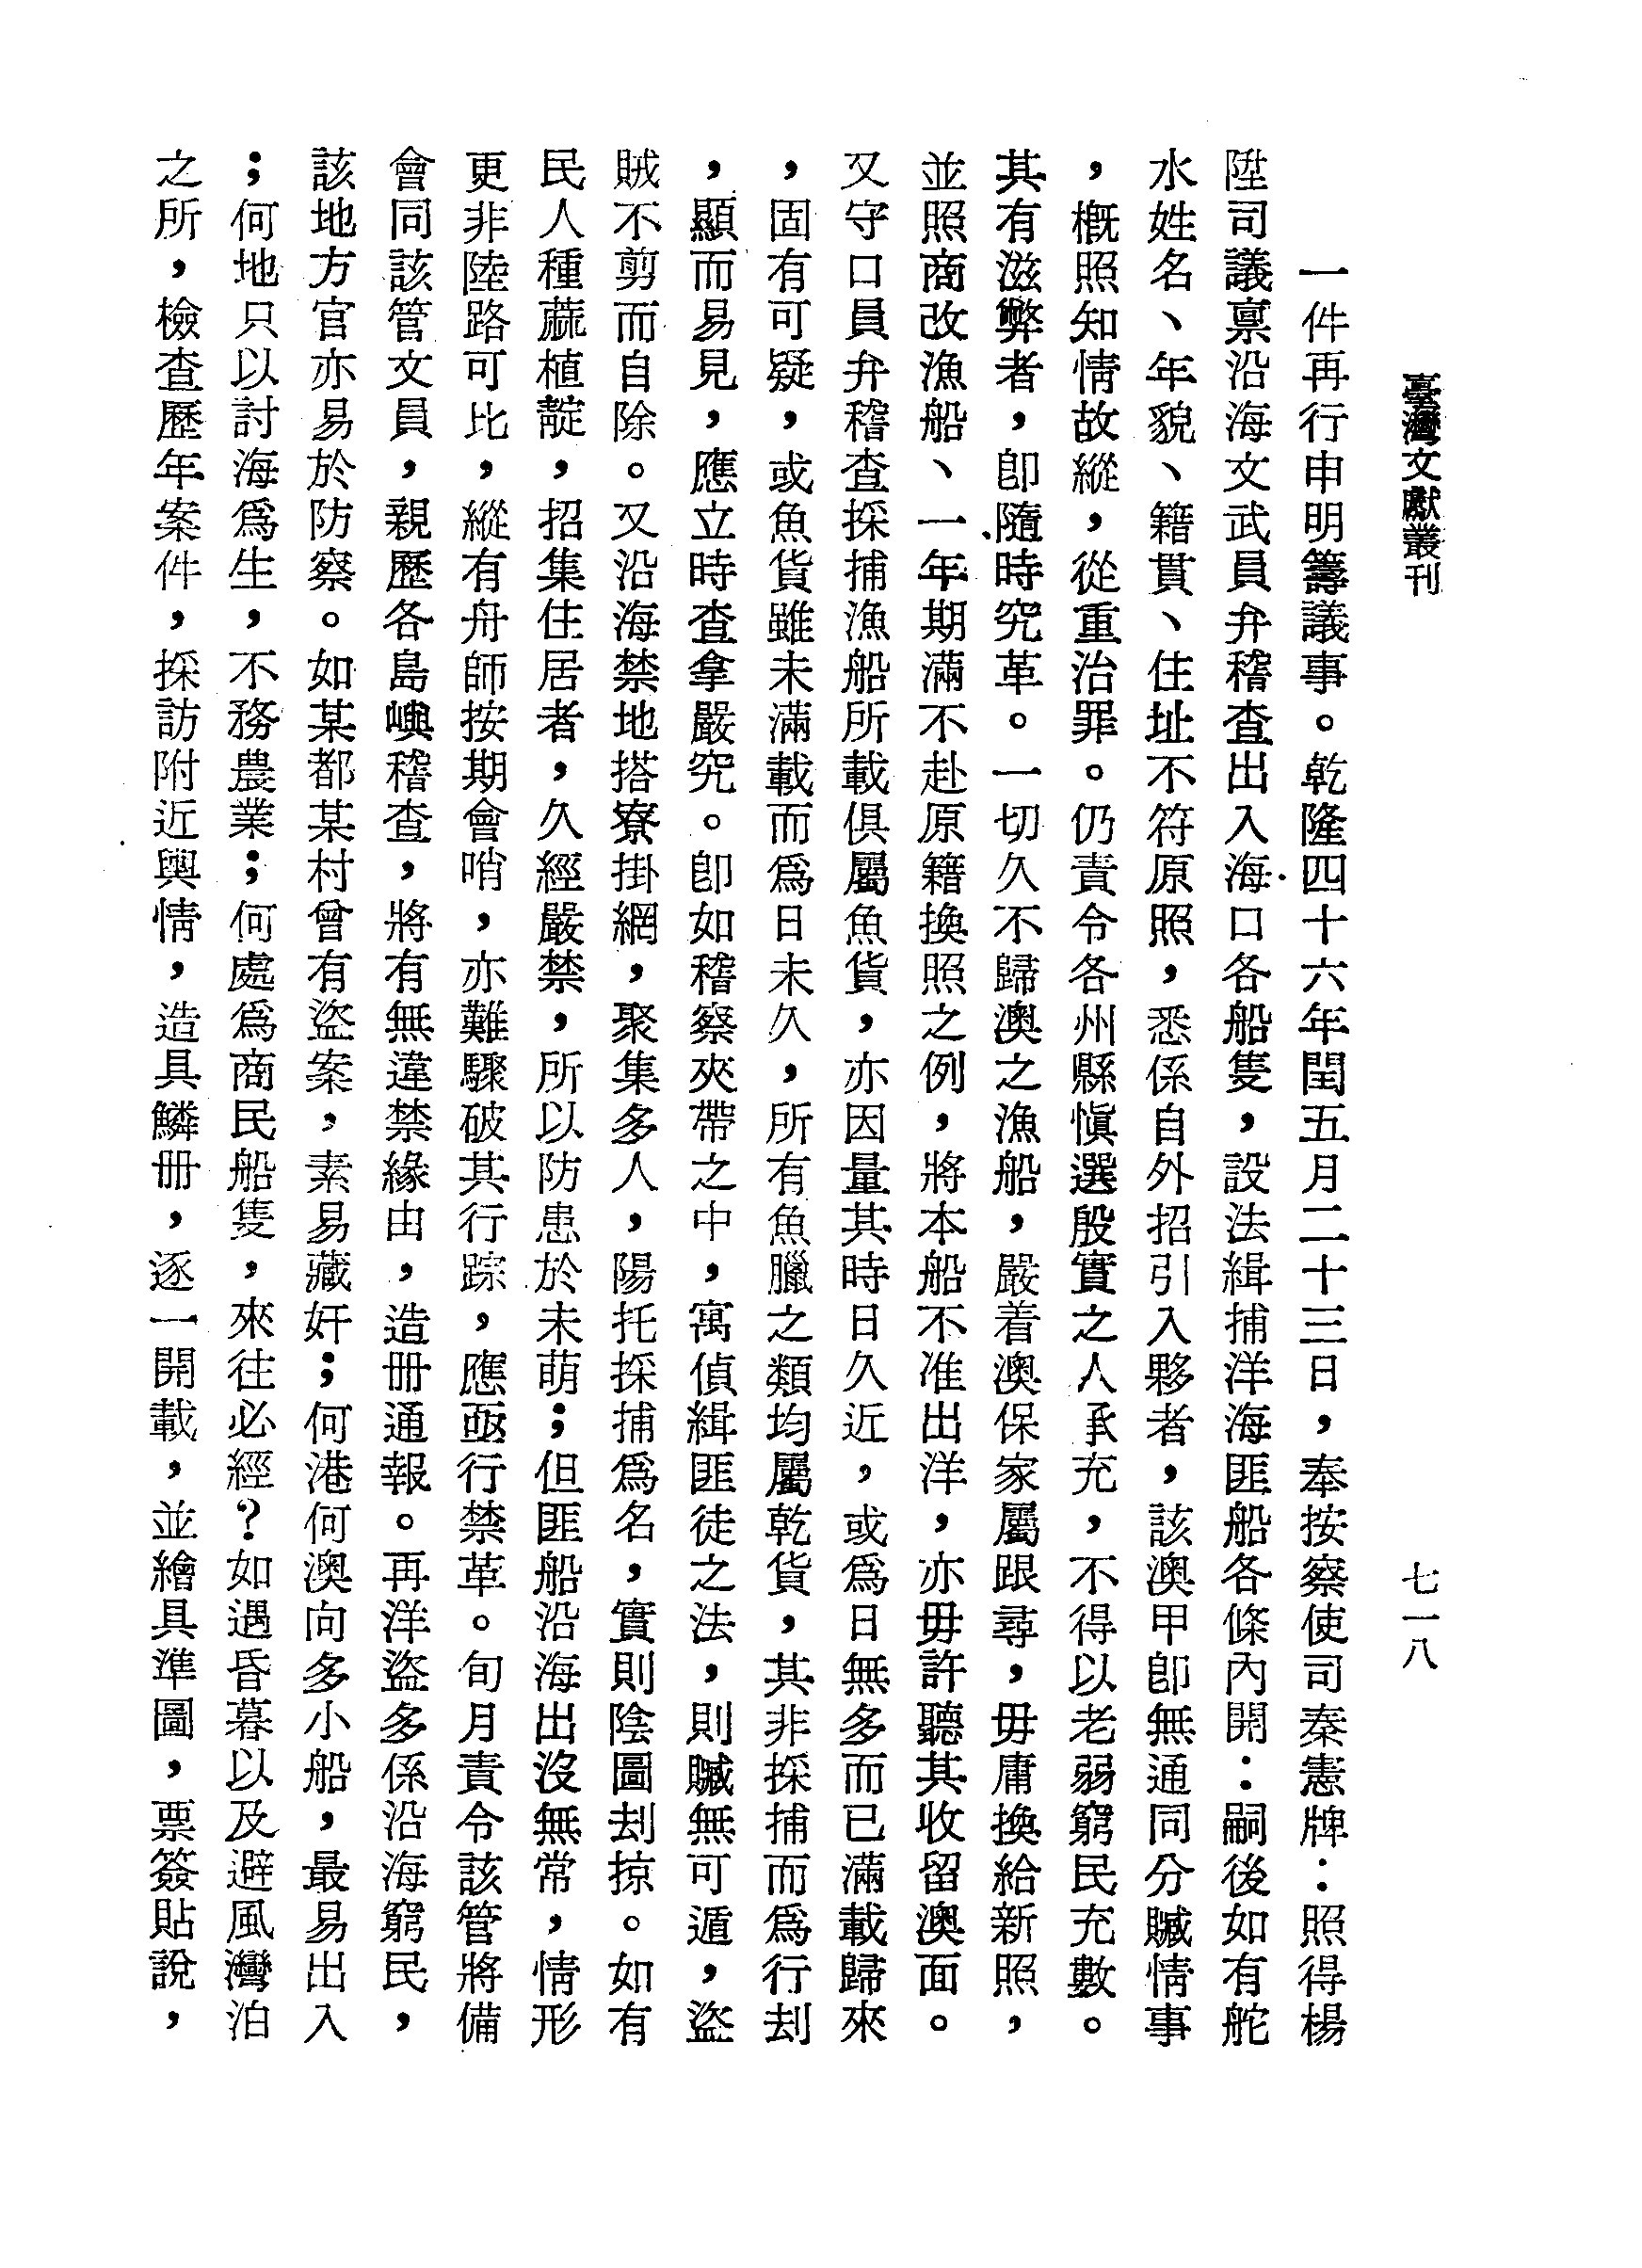 臺灣文獻叢刊
七一八
一件再行申明籌議事。乾隆四十六年閏五月二十三日，奉按察使司秦憲牌：照得楊
陞司議禀沿海文武員弁稽查出入海口各船隻，設法緝捕洋海匪船各條內開：嗣後如有舵
水姓名、年貌、籍貫、住址不符原照，悉係自外招引入夥者，該澳甲卽無通同分贓情事
，概照知情故縱，從重治罪。仍責令各州縣愼選殷實之人承充，不得以老弱窮民充數。
其有滋弊者，卽隨時究革。一切久不歸澳之漁船，嚴着澳保家屬跟尋，毋庸換給新照，
並照商改漁船、一年期滿不赴原籍換照之例，將本船不准出洋，亦毋許聽其收留澳面。
又守口員弁稽查採捕漁船所載俱屬魚貨，亦因量其時日久近，或爲日無多而已滿載歸來
，固有可疑，或魚貨雖未滿載而爲日未久，所有魚臘之類均屬乾貨，其非採捕而爲行刦
，顯而易見，應立時查拿嚴究。卽如稽察夾帶之中，寓偵緝匪徒之法，則贓無可遁，盜
賊不剪而自除。又沿海禁地搭寮掛網，聚集多人，陽托採捕爲名，實則陰圖刦掠。如有
民人種蔴植靛，招集住居者，久經嚴禁，所以防患於未萌；但匪船沿海出沒無常，情形
更非陸路可比，縱有舟師按期會哨，亦難驟破其行踪，應亟行禁革。旬月責令該管將備
會同該管文員，親歷各島嶼稽查，將有無違禁緣由，造冊通報。再洋盜多係沿海窮民，
該地方官亦易於防察。如某都某村曾有盜案，素易藏奸；何港何澳向多小船，最易出入
；何地只以討海爲生，不務農業；何處爲商民船隻，來往必經？如遇昏暮以及避風灣泊
之所，檢查歷年案件，採訪附近輿情，造具鱗冊，逐一開載，並繪具準圖，票簽貼說，